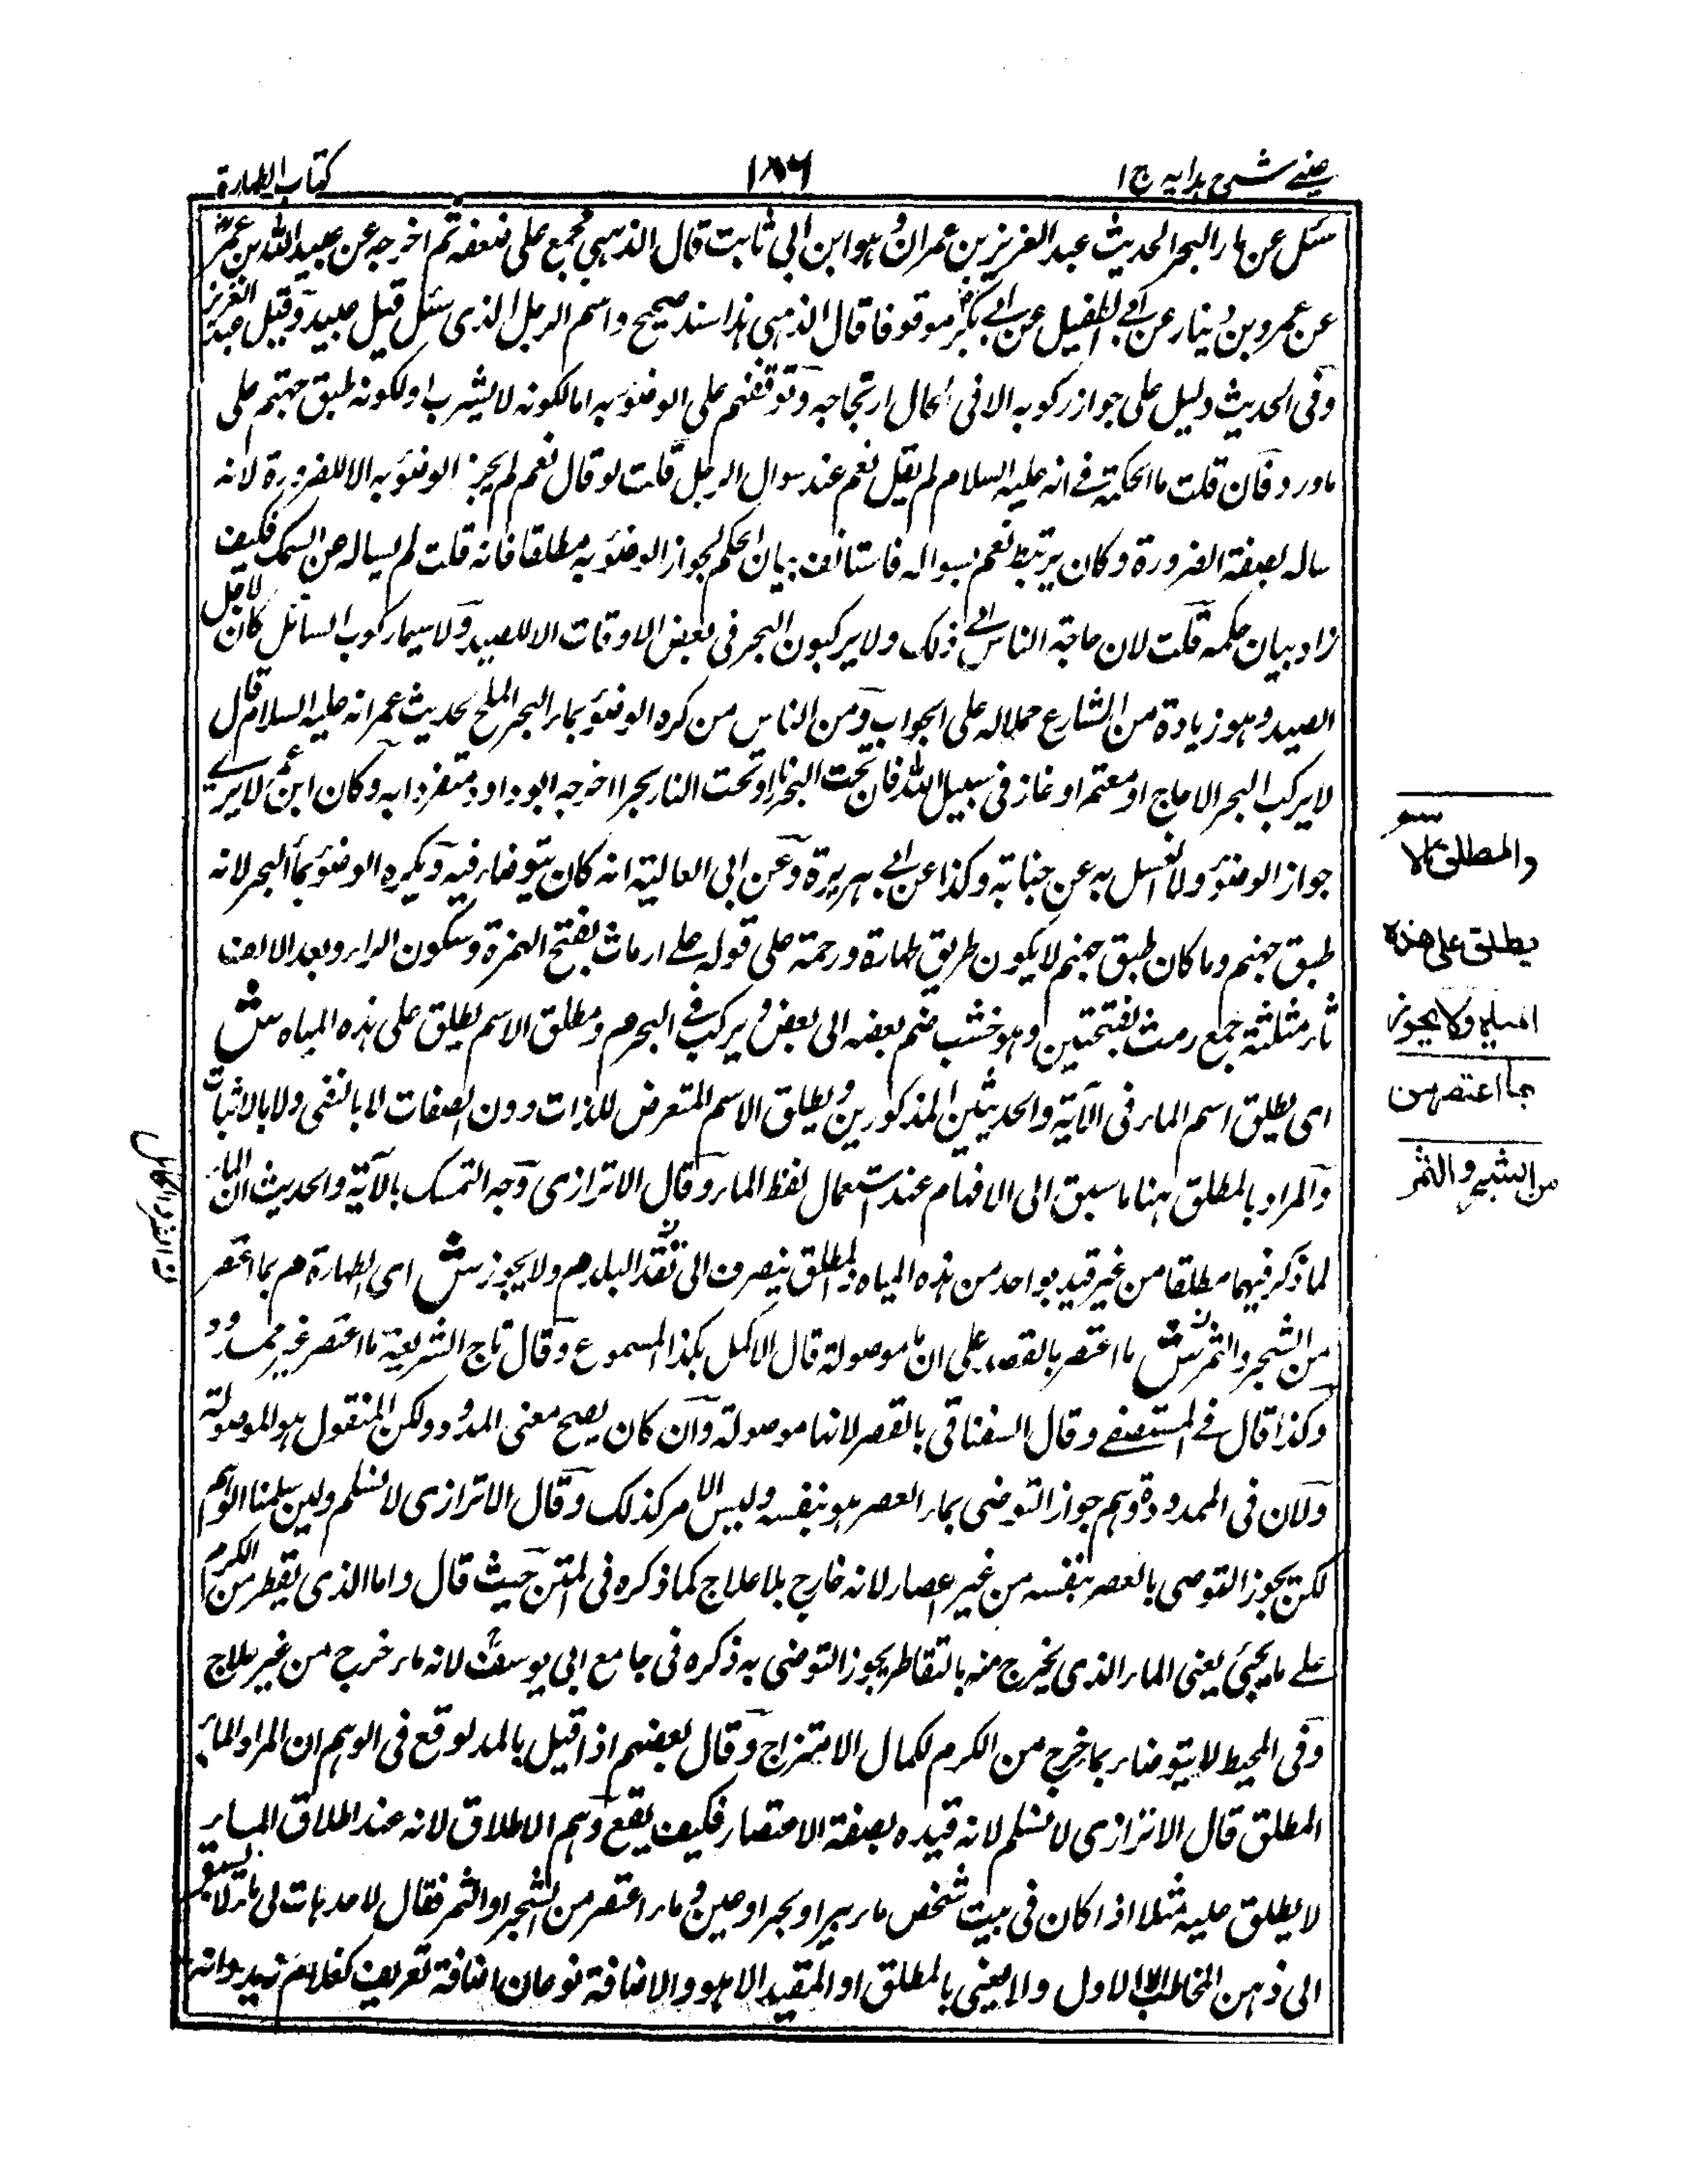 عینے شرح ہدایہ ج ۱
۱۸۶
کتاب الطہارۃ
سئل عن ماء البحر الحدیث عبد العزیز بن عمران وہو ابن ابی ثابت قال الذہبی مجمع علی ضعفہ ثم اخرجہ عن عبید اللہ بن عمر
عن عمرو بن دینار عن ابے الطفیل عن ابے بکر موقوفا قال الذہبی ہذا سند صحیح واسم الرجل الذی سئل قیل عبید وقیل عبد العزیز
وفی الحدیث دلیل علی جواز رکوبہ الا فی الحال ارتجاجہ وتوقفہم علی الوضوء بہ اما لکونہ لا یشرب او لکونہ طبق جہنم علی
ماورد فان قلت ما الحکمۃ فے انہ علیہ السلام لم یقل نعم عند سوال الرجل قلت لو قال نعم لم یجز الوضوء بہ الا للضرورۃ لانہ
سالہ بصفۃ الضرورۃ وکان یرتبط نعم بسوالہ فاستانف بیان الحکم لجواز الوضوء بہ مطلقا فانہ قلت لم یسالہ عن السمک فکیف
زاد بیان حکمہ قلت لان حاجۃ الناس الے ذلک ولا یرکبون البحر فی بعض الاوقات الا للصید ولا سیما رکوب السائل کان لاجل
الصید وہو زیادۃ من الشارع حملا لہ علی الجواب ومن الناس من کرہ الوضوء بماء البحر الملح لحدیث عمر انہ علیہ السلام قال
لا یرکب البحر الا حاج او معتمر او غاز فی سبیل اللہ فان تحت البحر نارا وتحت النار بحرا اخرجہ ابو داود متفردا بہ وکان ابن عمر لا یرے
جواز الوضوء ولا الغسل بہ عن جنابۃ وکذا عن ابے ہریرۃ وعن ابی العالیۃ انہ کان یتوضاء فیہ ویکرہ الوضوء بماء البحر لانہ
طبق جہنم وما کان طبق جہنم لا یکون طریق طہارۃ ورحمۃ علی قولہ علے ارماث بفتح الہمزۃ وسکون الراء وبعد الالف
ثاء مثلثۃ جمع رمث بفتحتین وہو خشب ضم بعضہ الی بعض ویرکب فے البحر م ومطلق الاسم یطلق علی ہذہ المیاہ ش
ای یطلق اسم الماء فی الآیۃ والحدیثین المذکورین ویطلق الاسم المتعرض للذات دون الصفات لا بالنفی ولا بالاثبات
والمراد بالمطلق ہنا ما سبق الی الافہام عند استعمال لفظ الماء وقال الاترازی وجہ التمسک بالآیۃ والحدیث ان الماء
لما ذکر فیہما مطلقا من غیر قید بواحد من ہذہ المیاہ والمطلق ینصرف الی نقد البلد م ولا یجوز ش ای الطہارۃ م بما اعتصر
من الشجر والثمر ش ما اعتصر بالقصر علی ان ما موصولۃ قال الاکمل ہکذا المسموع وقال تاج الشریعۃ ما اعتصر غیر ممدود
وکذا قال فے المستصفے وقال السغناقی بالقصر لانہا موصولۃ وان کان یصح معنی المدود ولکن المنقول ہو الموصولۃ
ولان فی الممدودۃ وہم جواز التوضی بماء العصر ہو بنفسہ ولیس الامر کذلک وقال الاترازی لا نسلم ولین سلمنا الوہم
لکن یجوز التوضی بالعصر بنفسہ من غیر اعصار لانہ خارج بلا علاج کما ذکرہ فی المتن حیث قال واما الذی یقطر من الکرم
علے ما یجئ یعنی الماء الذی یخرج منہ بالتقاطر یجوز التوضی بہ ذکرہ فی جامع ابی یوسف لانہ ماء خرج من غیر علاج
وفی المحیط لا یتوضاء بما خرج من الکرم لکمال الامتزاج وقال بعضہم اذا قیل بالمد لوقع فی الوہم ان المراد الماء
المطلق قال الاترازی لا نسلم لانہ قیدہ بصفۃ الاعتصار فکیف یقع وہم الاطلاق لانہ عند اطلاق الماء
لا یطلق علیہ مثلا اذا کان فی بیت شخص ماء بیر او بحر او عین وماء اعتصر من الشجر او الثمر فقال لاحد ہات لی ماء لا یسبق
الی ذہن المخاطب الا الاول ولا یعنی بالمطلق او المقید الا ہو والاضافۃ نوعان اضافۃ تعریف کغلام زید وانہ
والمطلق
یطلق علی هذه
المیاه ولا یجوز
بما اعتصر من
من الشجر والثمر